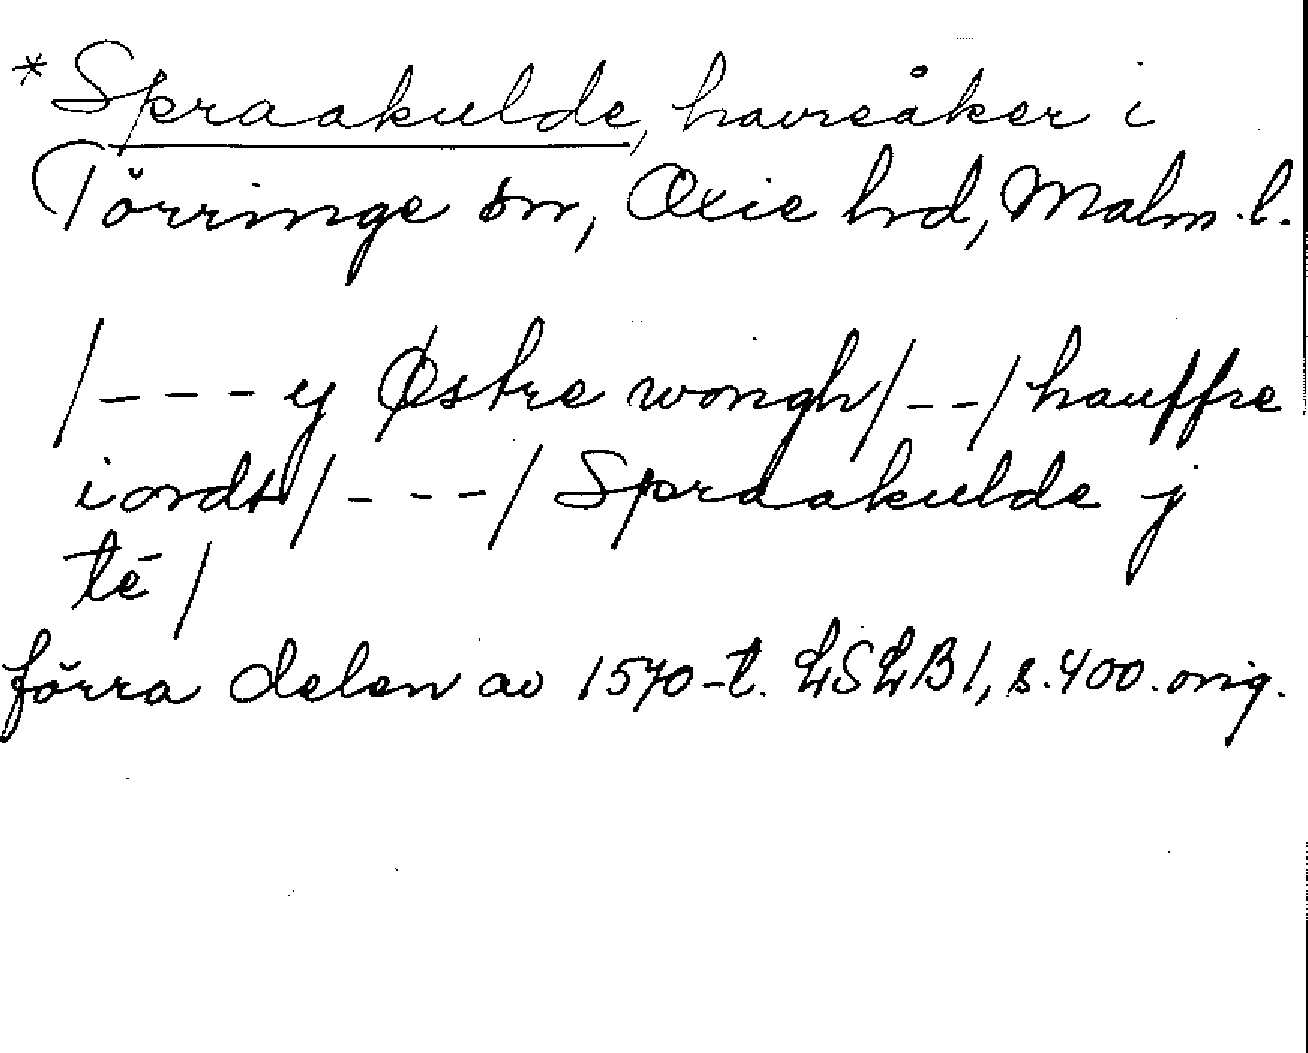 *Spraakulde, havreåker i
Törringe sn, Oxie hrd, Malm.l.
/--- y Østre wongh/--/hauffre
iordt/---/Spraakulde j
té/
förra delen av 1570-t. LSLB1, s.400.orig.